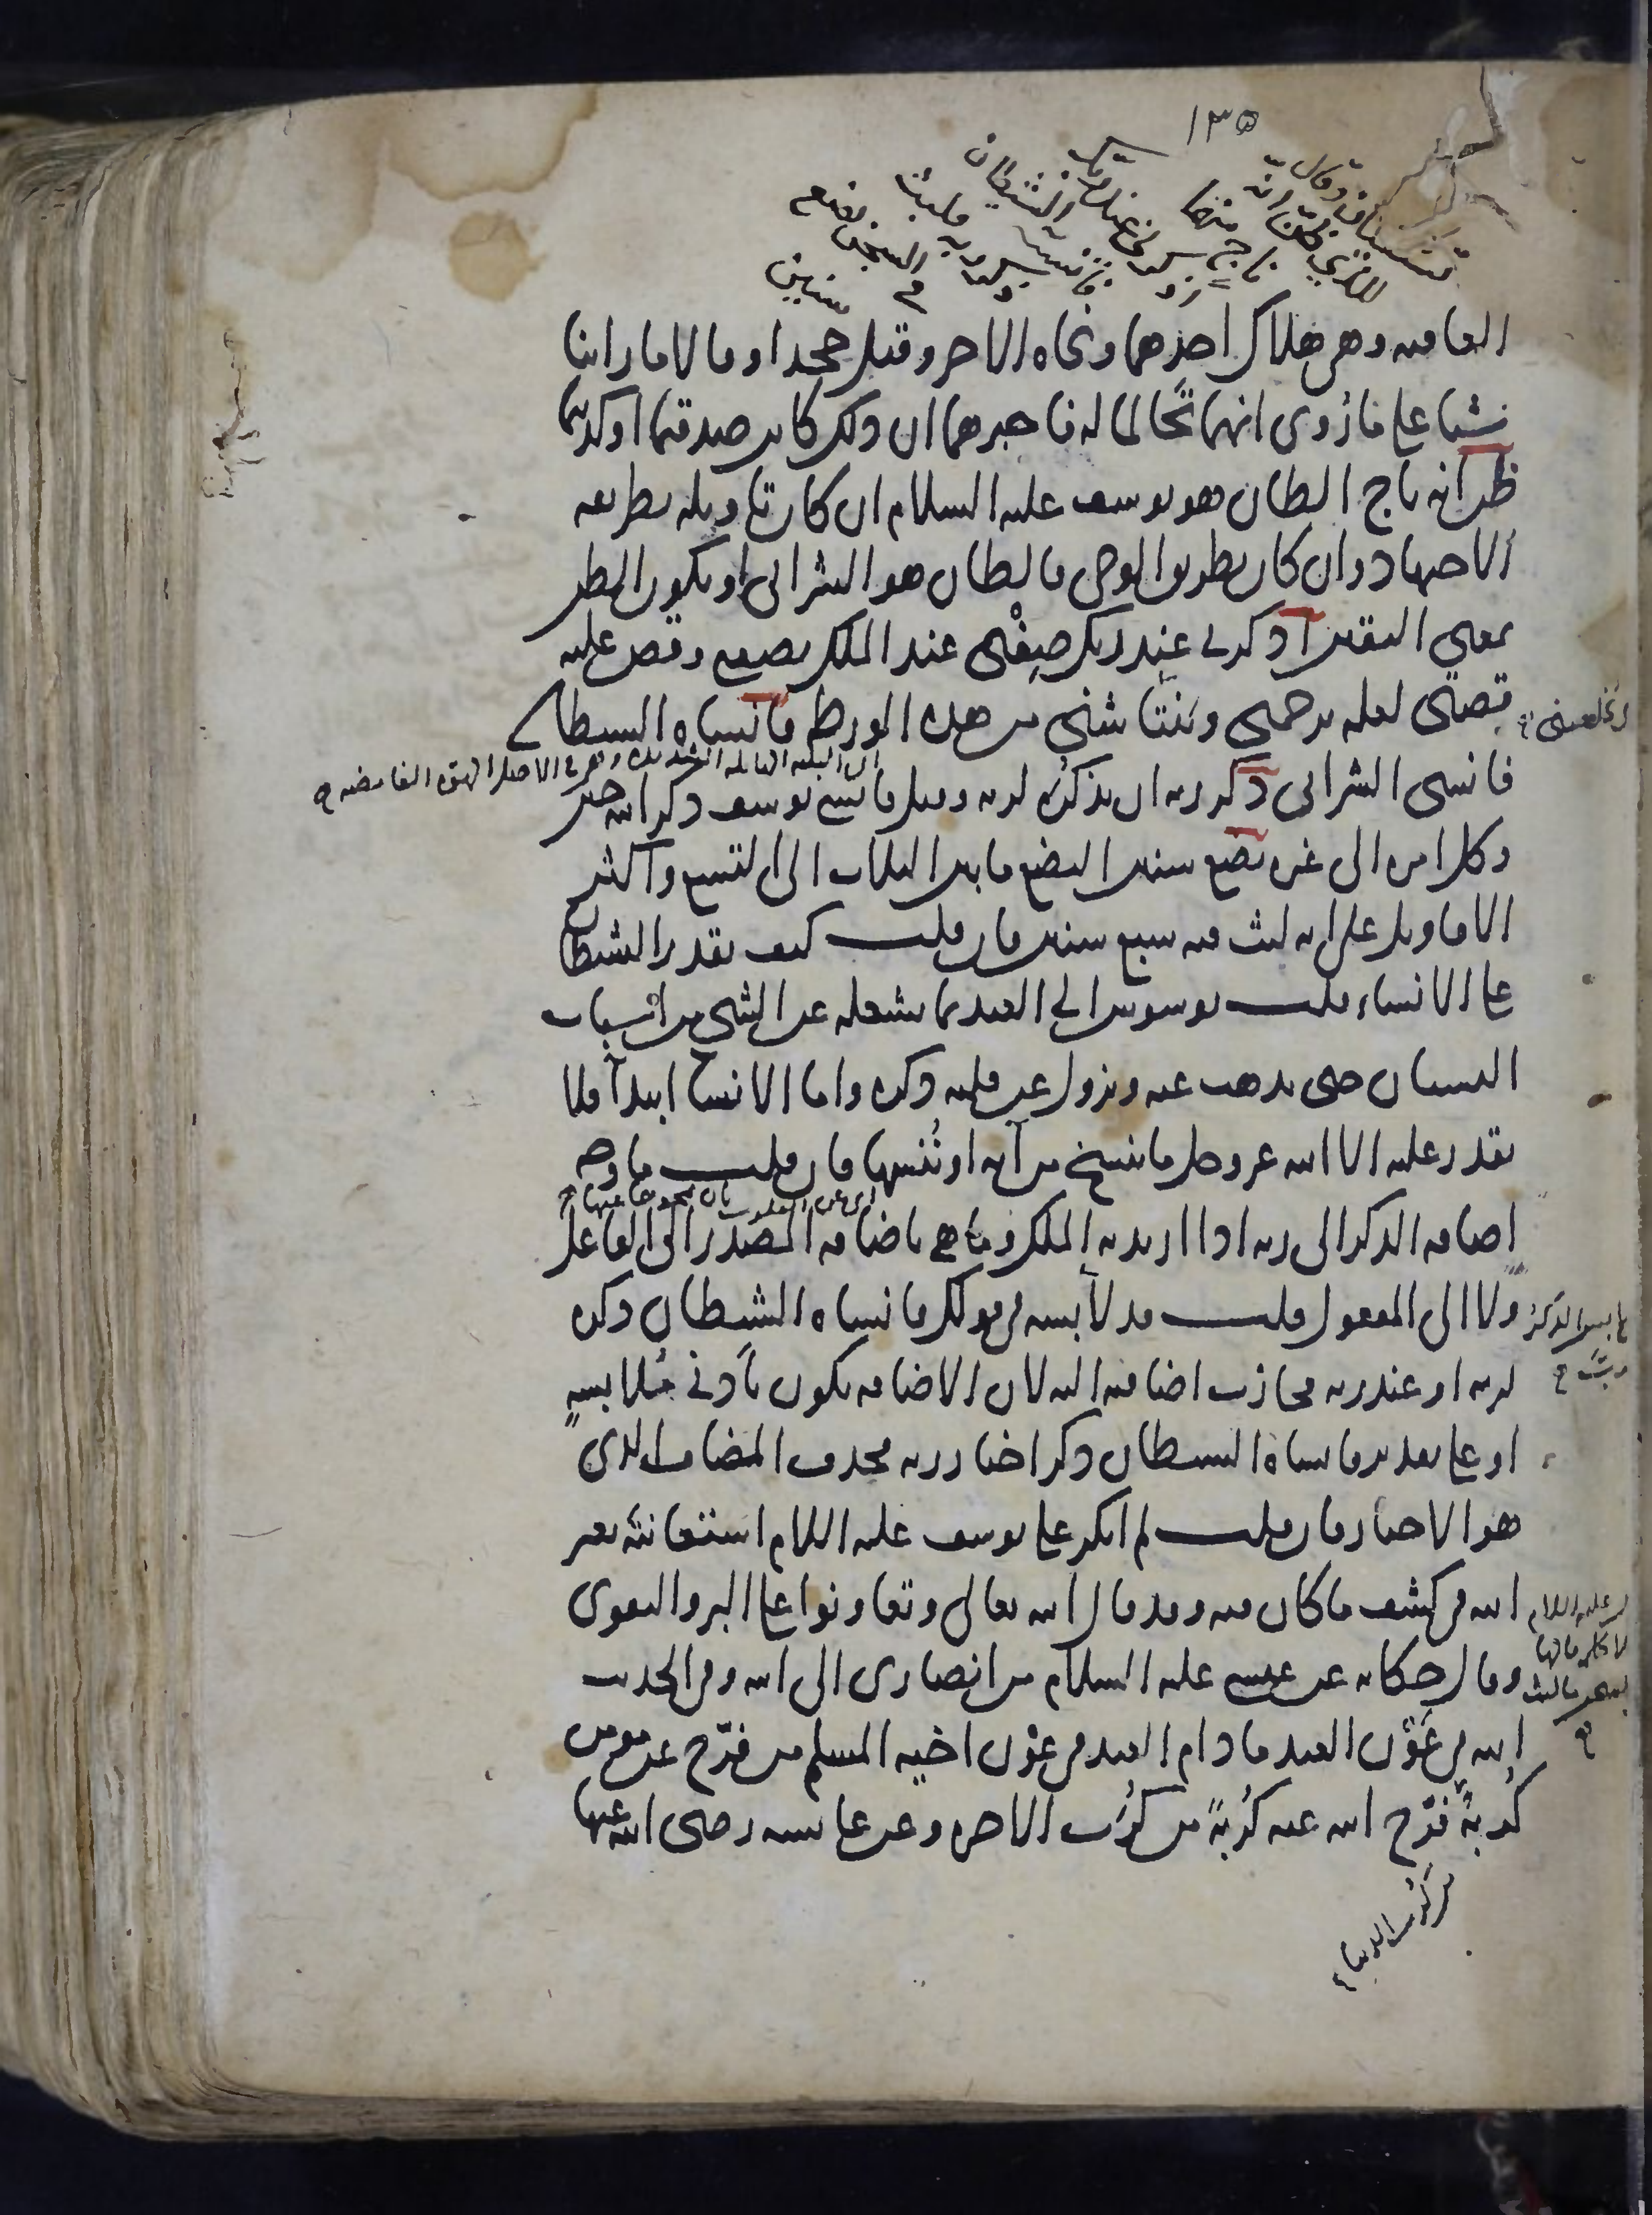 ١٣٥
تستفتيان وقال
للذي ظن انه
ناج منهما
اذكرني عند ربك
فانسيه الشيطان
ذكر ربه فلبث
في السجن بضع
سنين
العاقبة وهي هلاك احدهما ونجاة الاخر وقيل جحدا وقالا ما راينا
شيا على ما روى انهما تحالما له فاخبرهما ان ذلك كائن صدقتما او كذبتما
ظن انه ناج الظان هو يوسف عليه السلام ان كان تاويله بطريقه
الاجتهاد وان كان بطريق الوحى فالظان هو الشرابى او يكون الظن
بمعنى اليقين اذكرنى عند ربك صفنى عند الملك بصفتى وقص عليه
قصتى لعله يرحمنى وينتاشنى من هذه الورطه فانساه الشيطان
ويخلصنى
اى البليه الهايله الشديده وهى فى الاصل الهوة الغامضه
فانسى الشرابى ذكر ربه ان يذكره لربه وقيل فانسى يوسف ذكر الله حين
وكل امره الى غيره بضع سنين البضع ما بين الثلاث الى التسع واكثر
الاقاويل على انه لبث فيه سبع سنين فان قلت كيف يقدر الشيطان
على الانساء قلت يوسوس الى العبد بما يشغله عن الشى من اسباب
النسيان حتى يذهب عنه ويزول عن قلبه ذكره واما الانساء ابتداً فلا
يقدر عليه الا الله عز وجل ما ننسخ من آيه او نُنسها فان قلت ما وجه
اى عن القلوب بان نمحو حفظها
اضافه الذكر الى ربه اذا اريد به الملك وما هى باضافه المصدر الى الفاعل
ولا الى المفعول قلت قد لابسه فى قولك فانساه الشيطان ذكره
لابس الذكر
ربه
لربه او عند ربه فجازت اضافته اليه لان الاضافه تكون بادنى ملابسه
او على تقدير فانساه الشيطان ذكر اخبار ربه فحذف المضاف الذى
هو الاخبار فان قلت لم انكر على يوسف عليه السلام استعانته بغير
الله فى كشف ما كان فيه وقد قال الله تعالى وتعاونوا على البر والتقوى
وقال حكايه عن عيسى عليه السلام من انصارى الى الله وفى الحديث
الله فى عَوْن العبد ما دام العبد فى عون اخيه المسلم من فرّج عن مومن
كُربةً فرّج الله عنه كُربةً من كُرَب الاخره وعن عايشه رضى الله عنها
من كرب الدنيا